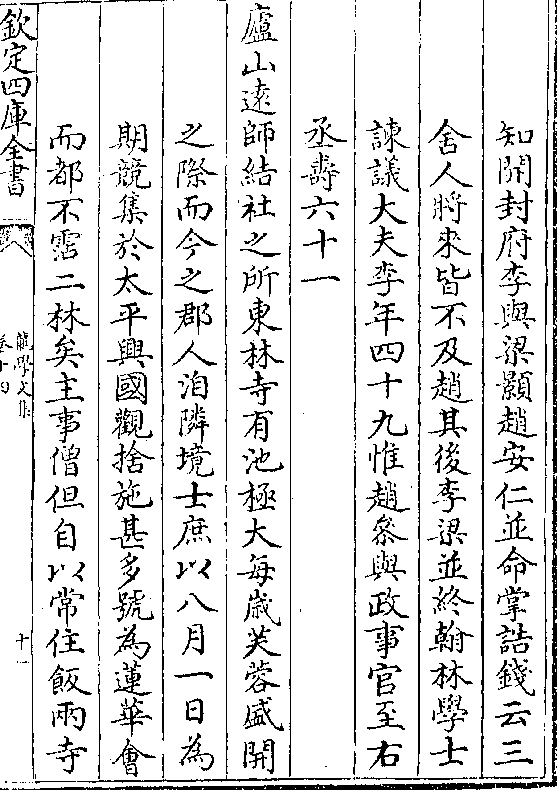 知開封府李與梁顥趙安仁並命掌誥錢云三
舍人將來皆不及趙其後李梁並終翰林學士
諫議大夫李年四十九惟趙叅與政事官至右
丞壽六十一
廬山逺師結社之所東林寺有池極大每嵗芙蓉盛開
之際而今之郡人洎隣境士庶以八月一日為
期競集於太平興國觀捨施甚多號為蓮華㑹
而都不霑二林矣主事僧但自以常住飯兩寺
欽定四庫全書
龍學文集
卷十四
十一